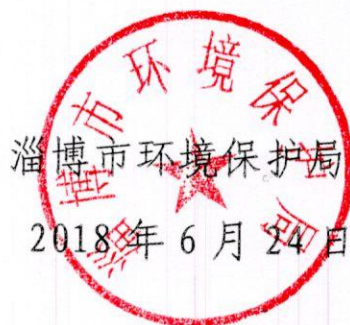 淄博市环境保护局
2018 年 6 月 24 日
淄博市环境保护局